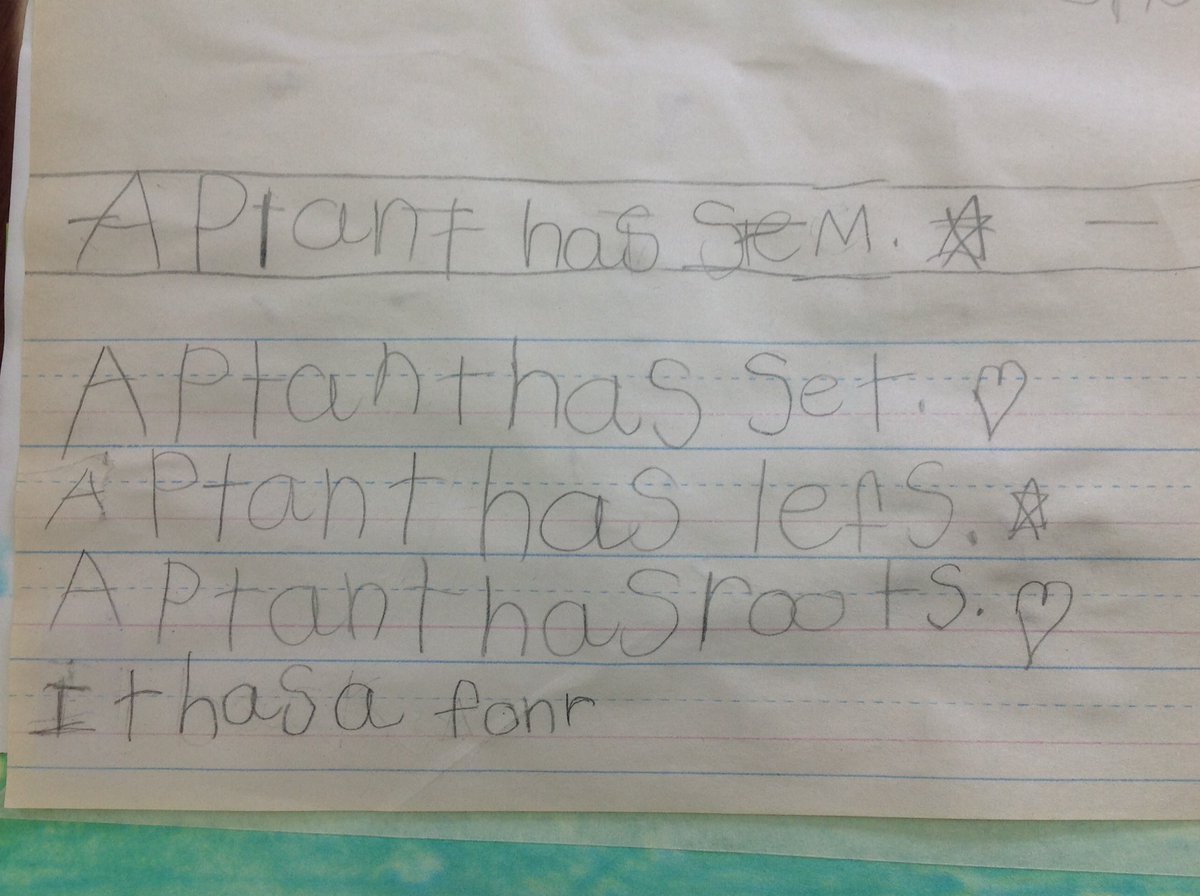 A Ptant has stem. ☆
A Ptant has set. ♡
A Ptant has lefs. ☆
A Ptant has roots. ♡
It has a fonr